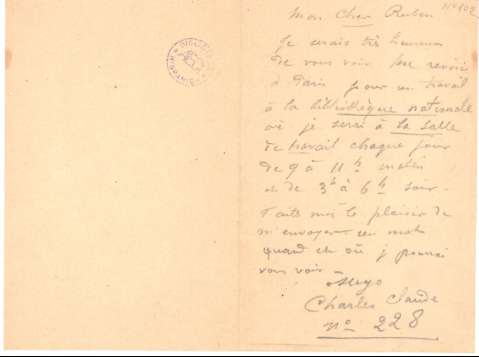 Mon cher Ruben
Je serais très heureux
de vous voir
à Paris pour un travail
à la bibliothèque nationale
où je serai à la salle
de travail chaque jour
de 9 à 11h matin
et de 3h à 6h soir.
Faites moi le plaisir de
m'envoyer un mot
quand et où je pourrai
vous voir
Charles Claude
no 228